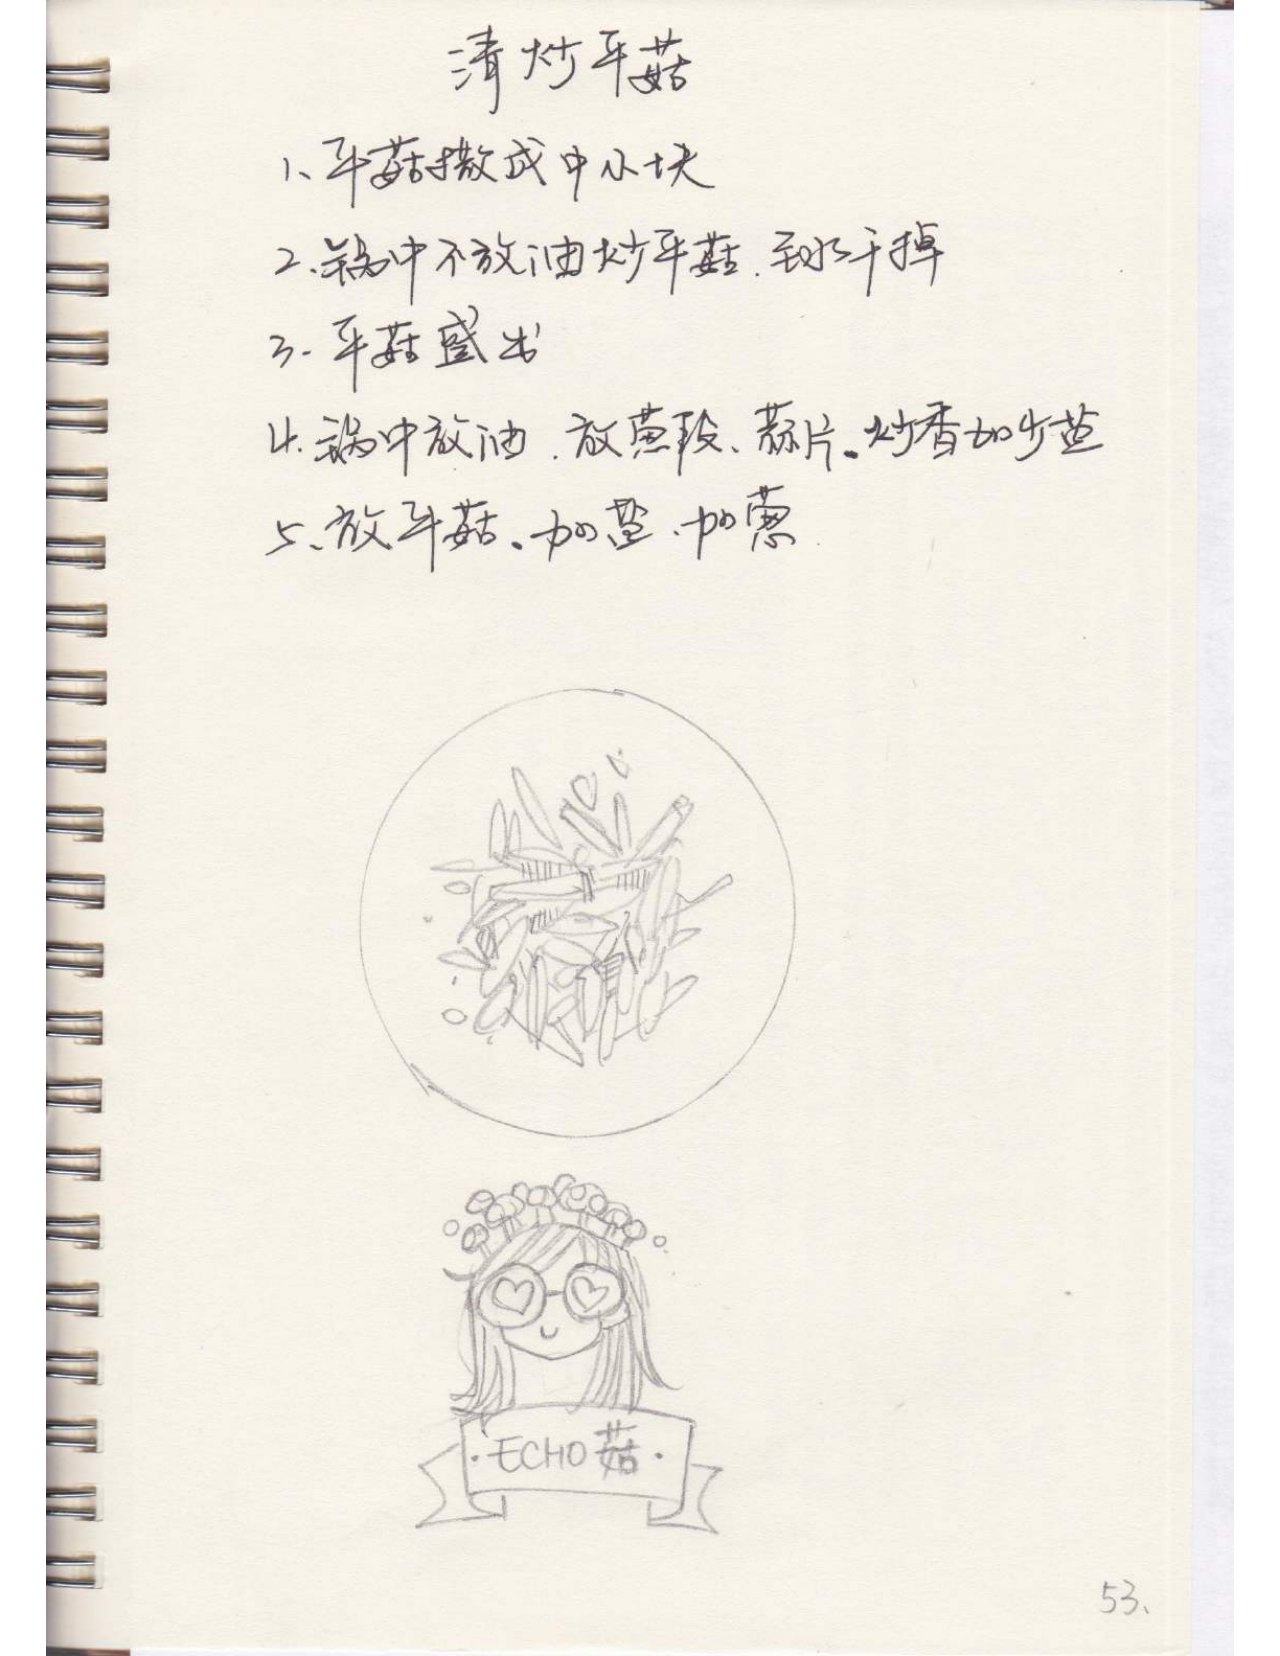 清炒平菇
1、平菇撒成中小块
2、锅中不放油炒平菇.到水干掉
3.平菇盛出
4.锅中放油.放葱段、蒜片。炒香加少盐
5、放平菇。加盐、加葱.
·ECHO菇·
53、